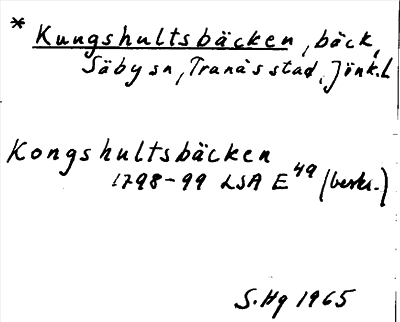 * Kungshultsbäcken, bäck,
Säby sn, Tranås stad, Jönk.L
Kongshultsbäcken
1798-99 LSA E49 (beskr.)
S.Hg 1965